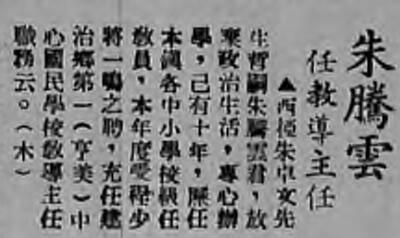 朱騰雲
任教導主任
▲西極朱卓文先
生哲嗣朱騰雲君，放
棄政治生活，專心辦
學，已有十年，歷任
本縣各中小學校級任
敎員，本年度受程少
將一鳴之聘，充任建
治鄉第一（亨美）中
心國民學校敎導主任
職務云。（木）